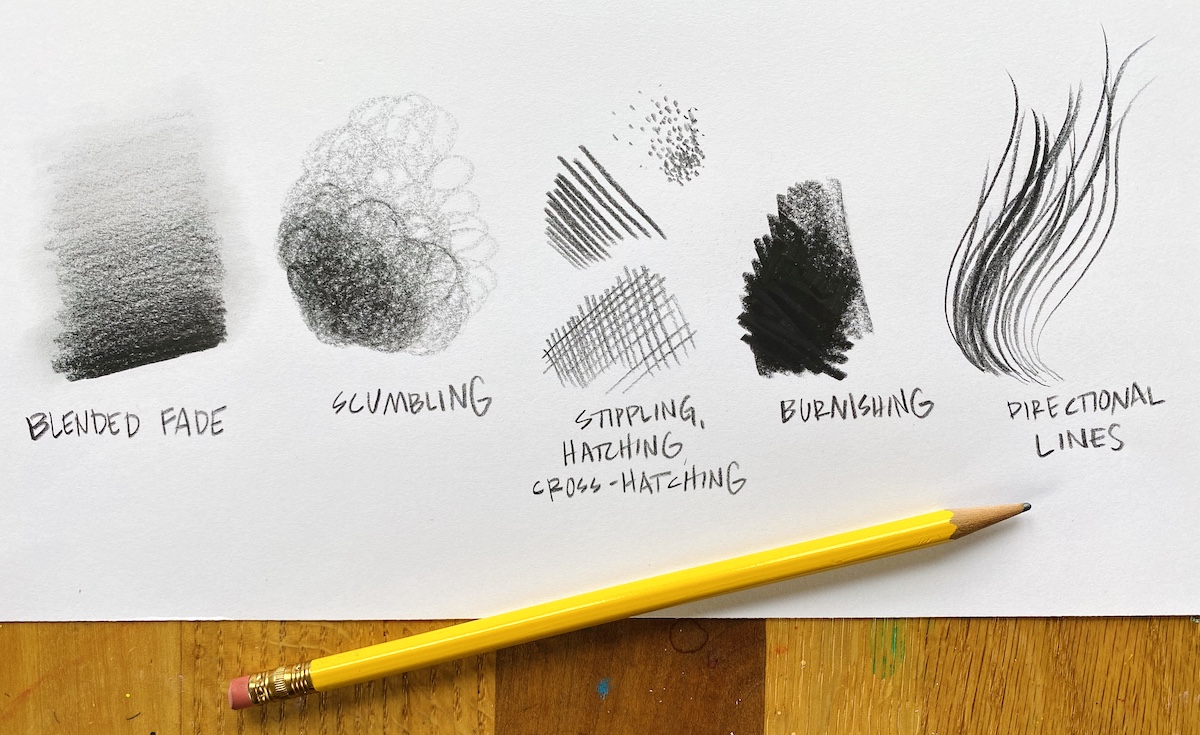 BLENDED FADE
SCUMBLING
STIPPLING,
HATCHING,
CROSS-HATCHING
BURNISHING
DIRECTIONAL
LINES